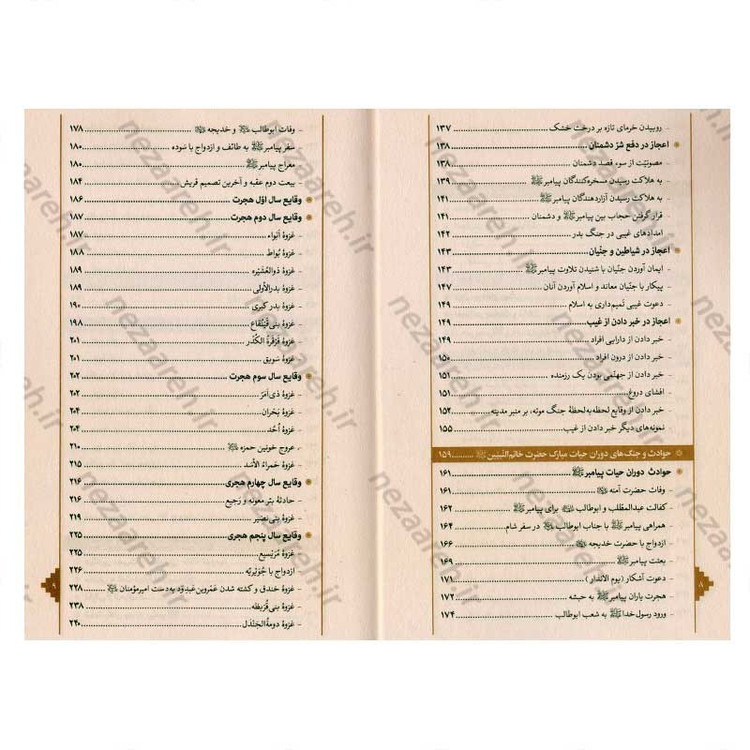 - روییدن خرمای تازه بر درخت خشک ۱۳۷
اعجاز در دفع شرّ دشمنان ۱۳۸
- مصونیّت از سوء قصد دشمنان ۱۳۸
- به هلاکت رسیدن مسخره‌کنندگان پیامبر ﷺ ۱۳۹
- به هلاکت رسیدن آزاردهندگان پیامبر ﷺ ۱۴۱
- قرار گرفتن حجاب بین پیامبر ﷺ و دشمنان ۱۴۱
- امدادهای غیبی در جنگ بدر ۱۴۲
اعجاز در شیاطین و جنّیان ۱۴۳
- ایمان آوردن جنّیان با شنیدن تلاوت پیامبر ﷺ ۱۴۳
- پیکار با جنّیان معاند و اسلام آوردن آنان ۱۴۷
- دعوت غیبی تمیم‌داری به اسلام ۱۴۹
اعجاز در خبر دادن از غیب ۱۴۹
- خبر دادن از دارایی افراد ۱۴۹
- خبر دادن از درون افراد ۱۵۰
- خبر دادن از جهنّمی بودن یک رزمنده ۱۵۱
- افشای دروغ ۱۵۱
- خبر دادن از وقایع لحظه‌به‌لحظهٔ جنگ موته، بر منبر مدینه ۱۵۲
- نمونه‌های دیگر خبر دادن از غیب ۱۵۵
حوادث و جنگ‌های دوران حیات مبارک حضرت خاتم‌النّبیین ﷺ ۱۵۹
حوادث دوران حیات پیامبر ﷺ ۱۶۱
- وفات حضرت آمنه ۱۶۱
- کفالت عبدالمطّلب و ابوطالب برای پیامبر ﷺ ۱۶۲
- همراهی پیامبر ﷺ با جناب ابوطالب در سفر شام ۱۶۴
- ازدواج با حضرت خدیجه ۱۶۶
- بعثت پیامبر ﷺ ۱۶۹
- دعوت آشکار (یوم الانذار) ۱۷۱
- هجرت یاران پیامبر ﷺ به حبشه ۱۷۲
- ورود رسول خدا ﷺ به شعب ابوطالب ۱۷۴
۸
- وفات ابوطالب و خدیجه ۱۷۸
- سفر پیامبر ﷺ به طائف و ازدواج با سَوده ۱۸۰
- معراج پیامبر ﷺ ۱۸۰
- بیعت دوم عقبه و آخرین تصمیم قریش ۱۸۴
وقایع سال اوّل هجرت ۱۸۶
وقایع سال دوم هجرت ۱۸۷
- غزوهٔ اَبواء ۱۸۷
- غزوهٔ بُواط ۱۸۸
- غزوهٔ ذوالعُشَیْره ۱۸۹
- غزوهٔ بدرالأولی ۱۸۹
- غزوهٔ بدر کبری ۱۹۰
- غزوهٔ بنی قَیْنُقاع ۱۹۸
- غزوهٔ قَرْقَرةُ الْکُدْر ۲۰۱
- غزوهٔ سَویق ۲۰۱
وقایع سال سوم هجرت ۲۰۲
- غزوهٔ ذی اَمَرّ ۲۰۲
- غزوهٔ بَحْران ۲۰۴
- غزوهٔ اُحُد ۲۰۴
- عروج خونین حمزه ۲۱۰
- غزوهٔ حَمراءُ الأسَد ۲۱۵
وقایع سال چهارم هجری ۲۱۶
- حادثهٔ بئر معونه و رَجیع ۲۱۶
- غزوهٔ بنی نَضیر ۲۱۹
وقایع سال پنجم هجری ۲۲۵
- غزوهٔ مُرَیْسیع ۲۲۵
- ازدواج با جُوَیْرِیّه ۲۲۶
- غزوهٔ خندق و کشته شدن عَمْروبن عَبدِوَد به‌دست امیرمؤمنان ۲۲۸
- غزوهٔ بنی قُرَیظه ۲۳۸
- غزوهٔ دومةُ الجَندَل ۲۴۰
nezaareh.ir
nezaareh.ir
nezaareh.ir
nezaareh.ir
nezaareh.ir
nezaareh.ir